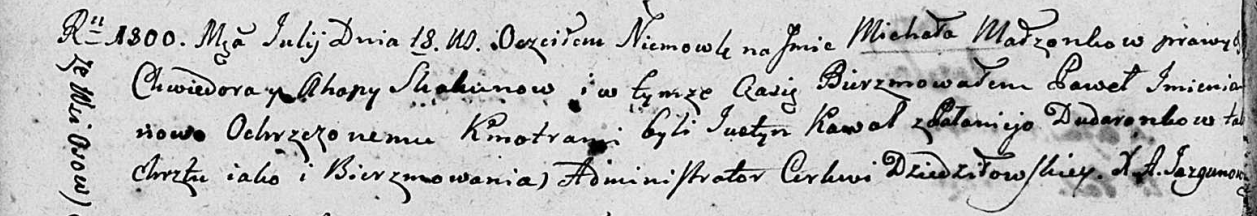 Ru 1800. Mca Julij Dnia 18. Ns. Oczciłem Niemowlę na Jmie Michała Małzonkow prawych
Chwiedora y Ahapy Skakunow i w tymze Czasię Bierzmowałem Paweł Jmienia
nowo Ochrzczonemu Kmotrami byli Justyn Kawal z Pałaniejo Dudaronkow ta
chrztu iako i Bierzmowania) Administrator Cerkwi Dziedziłowskiey. X. A. Jazgunow